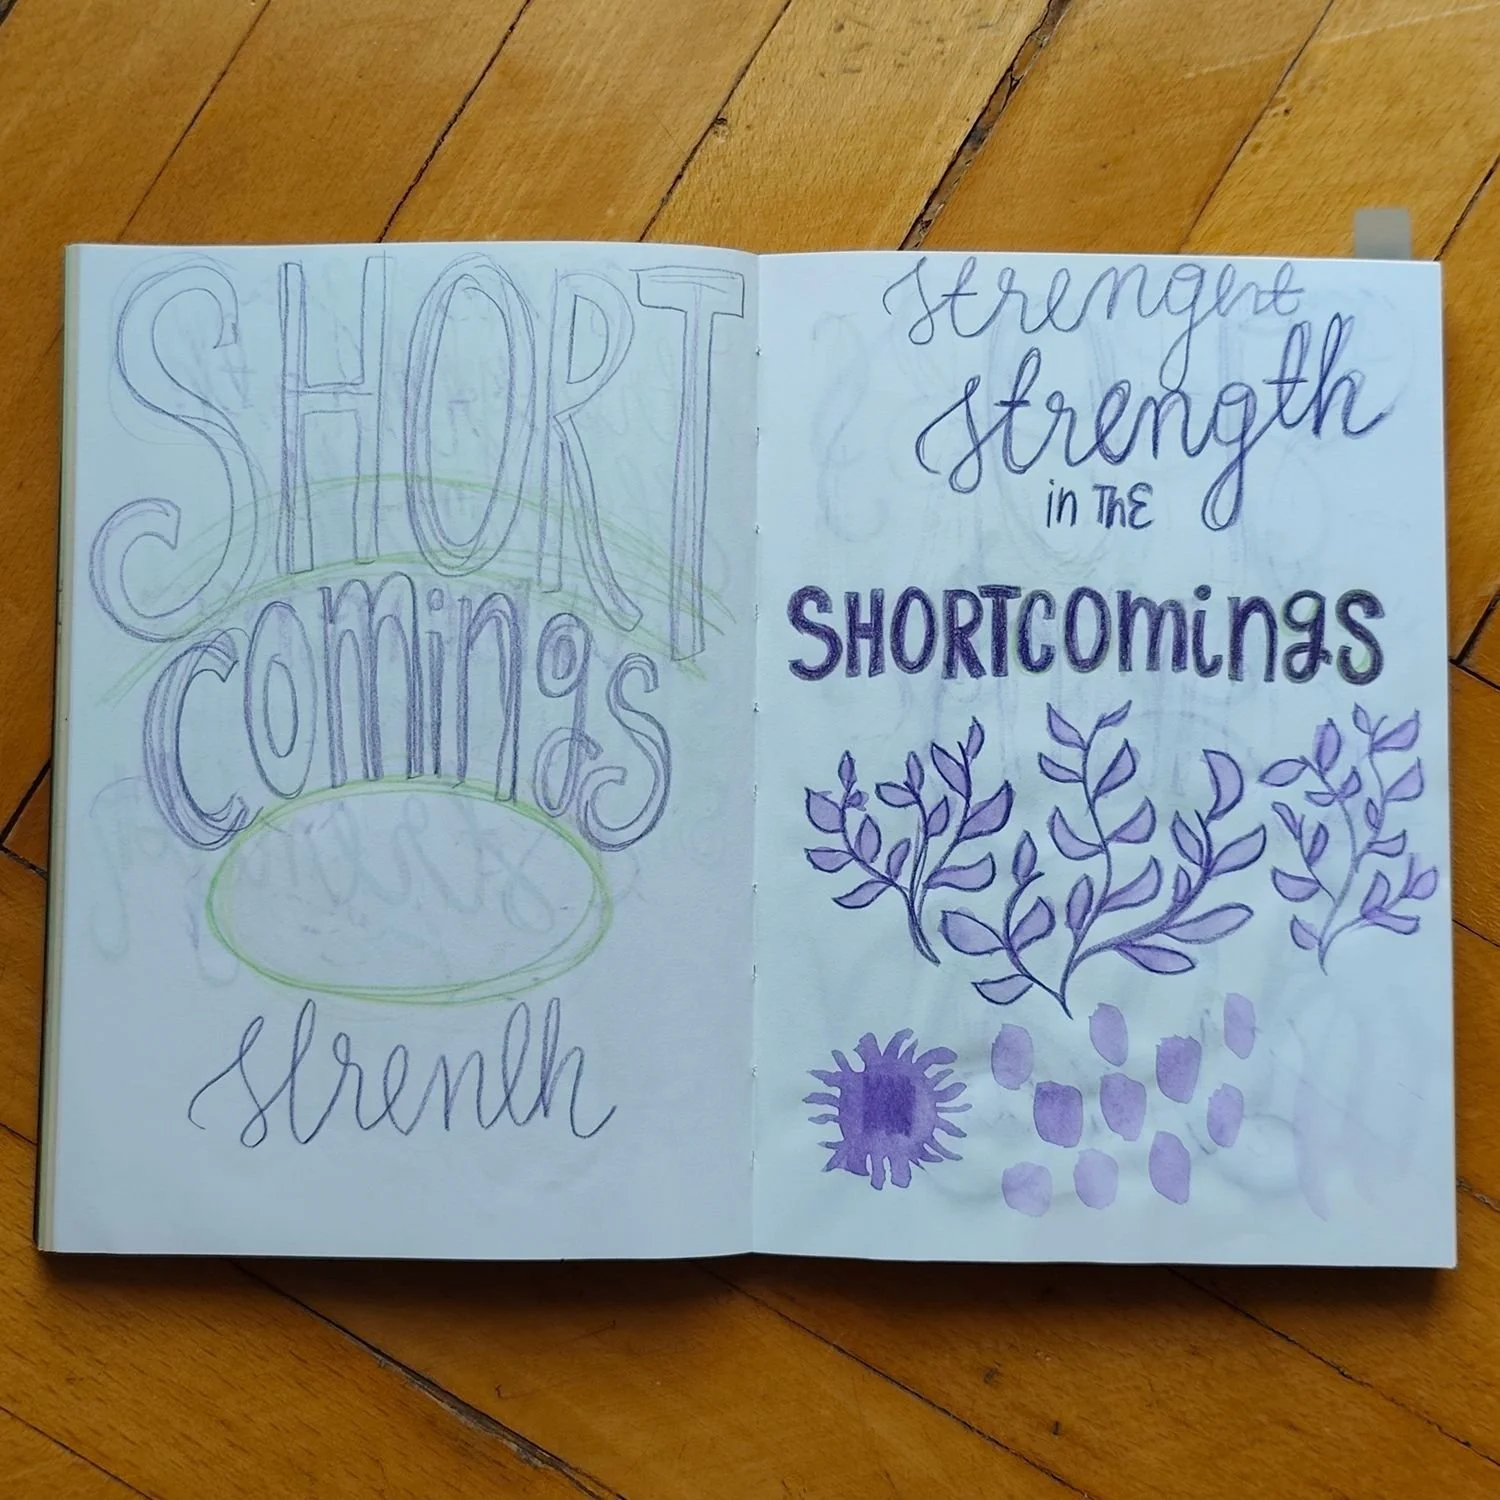 SHORT
comings
strenlh
strengt
strength
in ThE
SHORTcomings